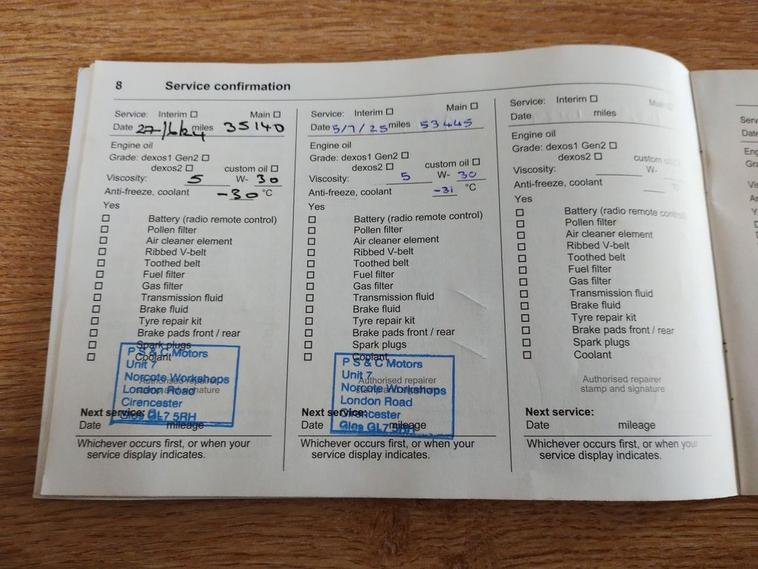 8 Service confirmation
Service: Interim ☐ Main ☐
Date 27/6/24 miles 35140
Engine oil
Grade: dexos1 Gen2 ☐
dexos2 ☐ custom oil ☐
Viscosity: 5 W- 30
Anti-freeze, coolant -30 °C
Yes
☐ Battery (radio remote control)
☐ Pollen filter
☐ Air cleaner element
☐ Ribbed V-belt
☐ Toothed belt
☐ Fuel filter
☐ Gas filter
☐ Transmission fluid
☐ Brake fluid
☐ Tyre repair kit
☐ Brake pads front / rear
☐ Spark plugs
☐ Coolant
P S & C Motors
Unit 7
Norcote Workshops
London Road
Cirencester
Glos GL7 5RH
Next service:
Date mileage
Whichever occurs first, or when your
service display indicates.
Service: Interim ☐ Main ☐
Date 5/7/25 miles 53445
Engine oil
Grade: dexos1 Gen2 ☐
dexos2 ☐ custom oil ☐
Viscosity: 5 W- 30
Anti-freeze, coolant -31 °C
Yes
☐ Battery (radio remote control)
☐ Pollen filter
☐ Air cleaner element
☐ Ribbed V-belt
☐ Toothed belt
☐ Fuel filter
☐ Gas filter
☐ Transmission fluid
☐ Brake fluid
☐ Tyre repair kit
☐ Brake pads front / rear
☐ Spark plugs
☐ Coolant
P S & C Motors
Unit 7
Authorised repairer
Norcote Workshops
London Road
Cirencester
Glos GL7 5RH
Next service:
Date mileage
Whichever occurs first, or when your
service display indicates.
Service: Interim ☐ Main ☐
Date miles
Engine oil
Grade: dexos1 Gen2 ☐
dexos2 ☐ custom oil ☐
Viscosity: W-
Anti-freeze, coolant °C
Yes
☐ Battery (radio remote control)
☐ Pollen filter
☐ Air cleaner element
☐ Ribbed V-belt
☐ Toothed belt
☐ Fuel filter
☐ Gas filter
☐ Transmission fluid
☐ Brake fluid
☐ Tyre repair kit
☐ Brake pads front / rear
☐ Spark plugs
☐ Coolant
Authorised repairer
stamp and signature
Next service:
Date mileage
Whichever occurs first, or when your
service display indicates.